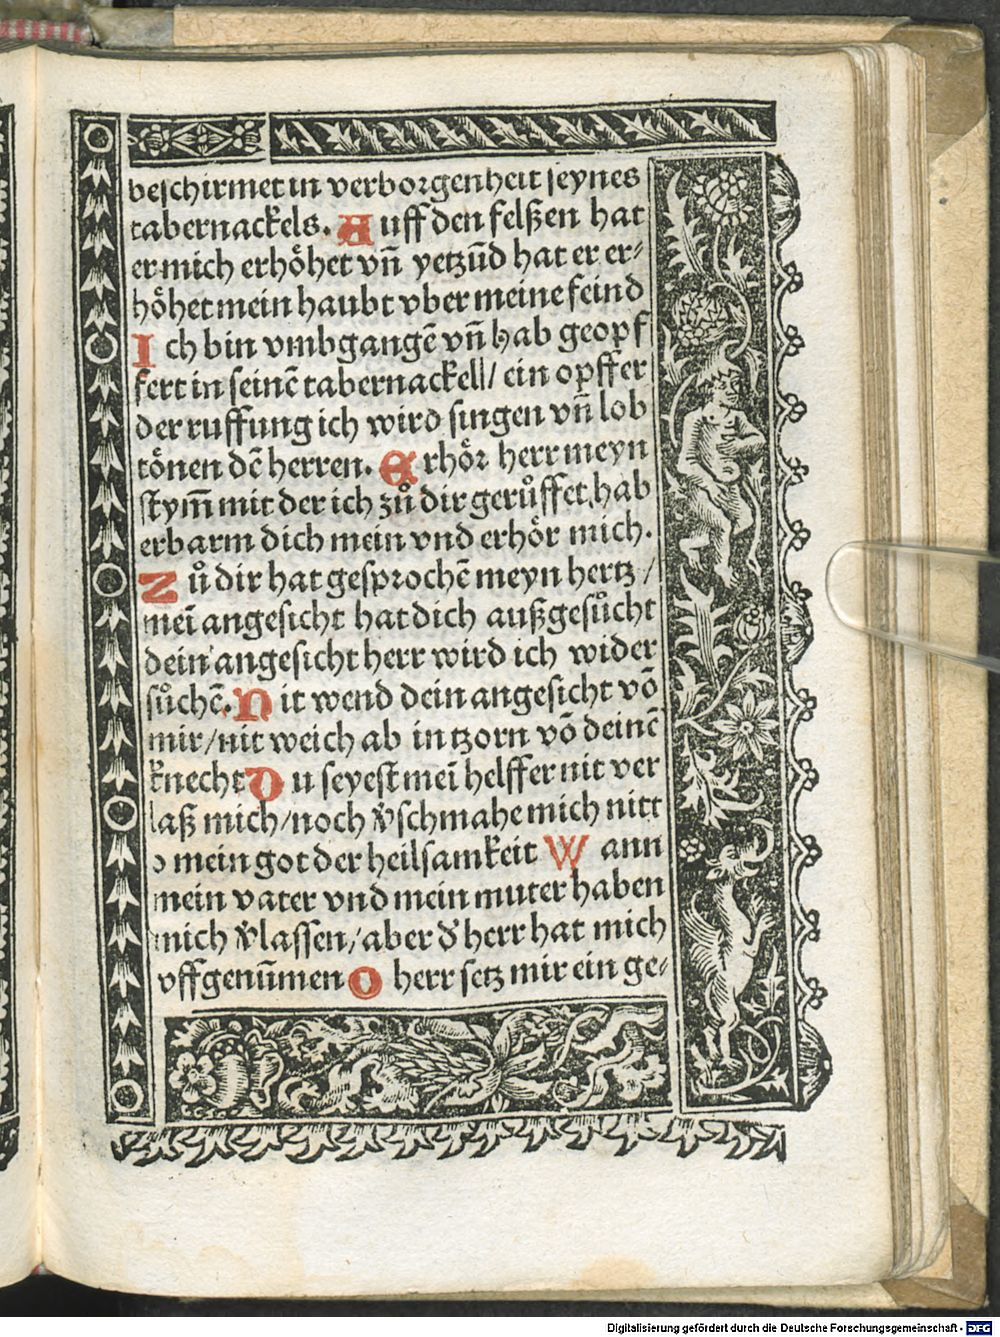 beschirmet in verborgenheit seynes
tabernackels. Auff den felßen hat
er mich erhoͤhet vn̄ yetzūd hat er er⸗
hoͤhet mein haubt vber meine feind
Ich bin vmbgangē vn̄ hab geopf
fert in seinē tabernackell/ ein opffer
der ruffung ich wird singen vn̄ lob
toͤnen dē herren. Erhoͤr herr meyn
stym̄ mit der ich zuͦ dir geruͦffet hab
erbarm dich mein vnd erhoͤr mich.
Zuͦ dir hat gesprochē meyn hertz/
meī angesicht hat dich außgesuͦcht
dein angesicht herr wird ich wider
suͦchē. Nit wend dein angesicht vō
mir/nit weich ab in tzorn vō deinē
knecht Du seyest meī helffer nit ver
laß mich/noch v̕schmahe mich nitt
o mein got der heilsamkeit Wann
mein vater vnd mein muter haben
mich v̕lassen/aber d̕ herr hat mich
vffgenūmen O herr setz mir ein ge⸗
Digitalisierung gefördert durch die Deutsche Forschungsgemeinschaft - DFG